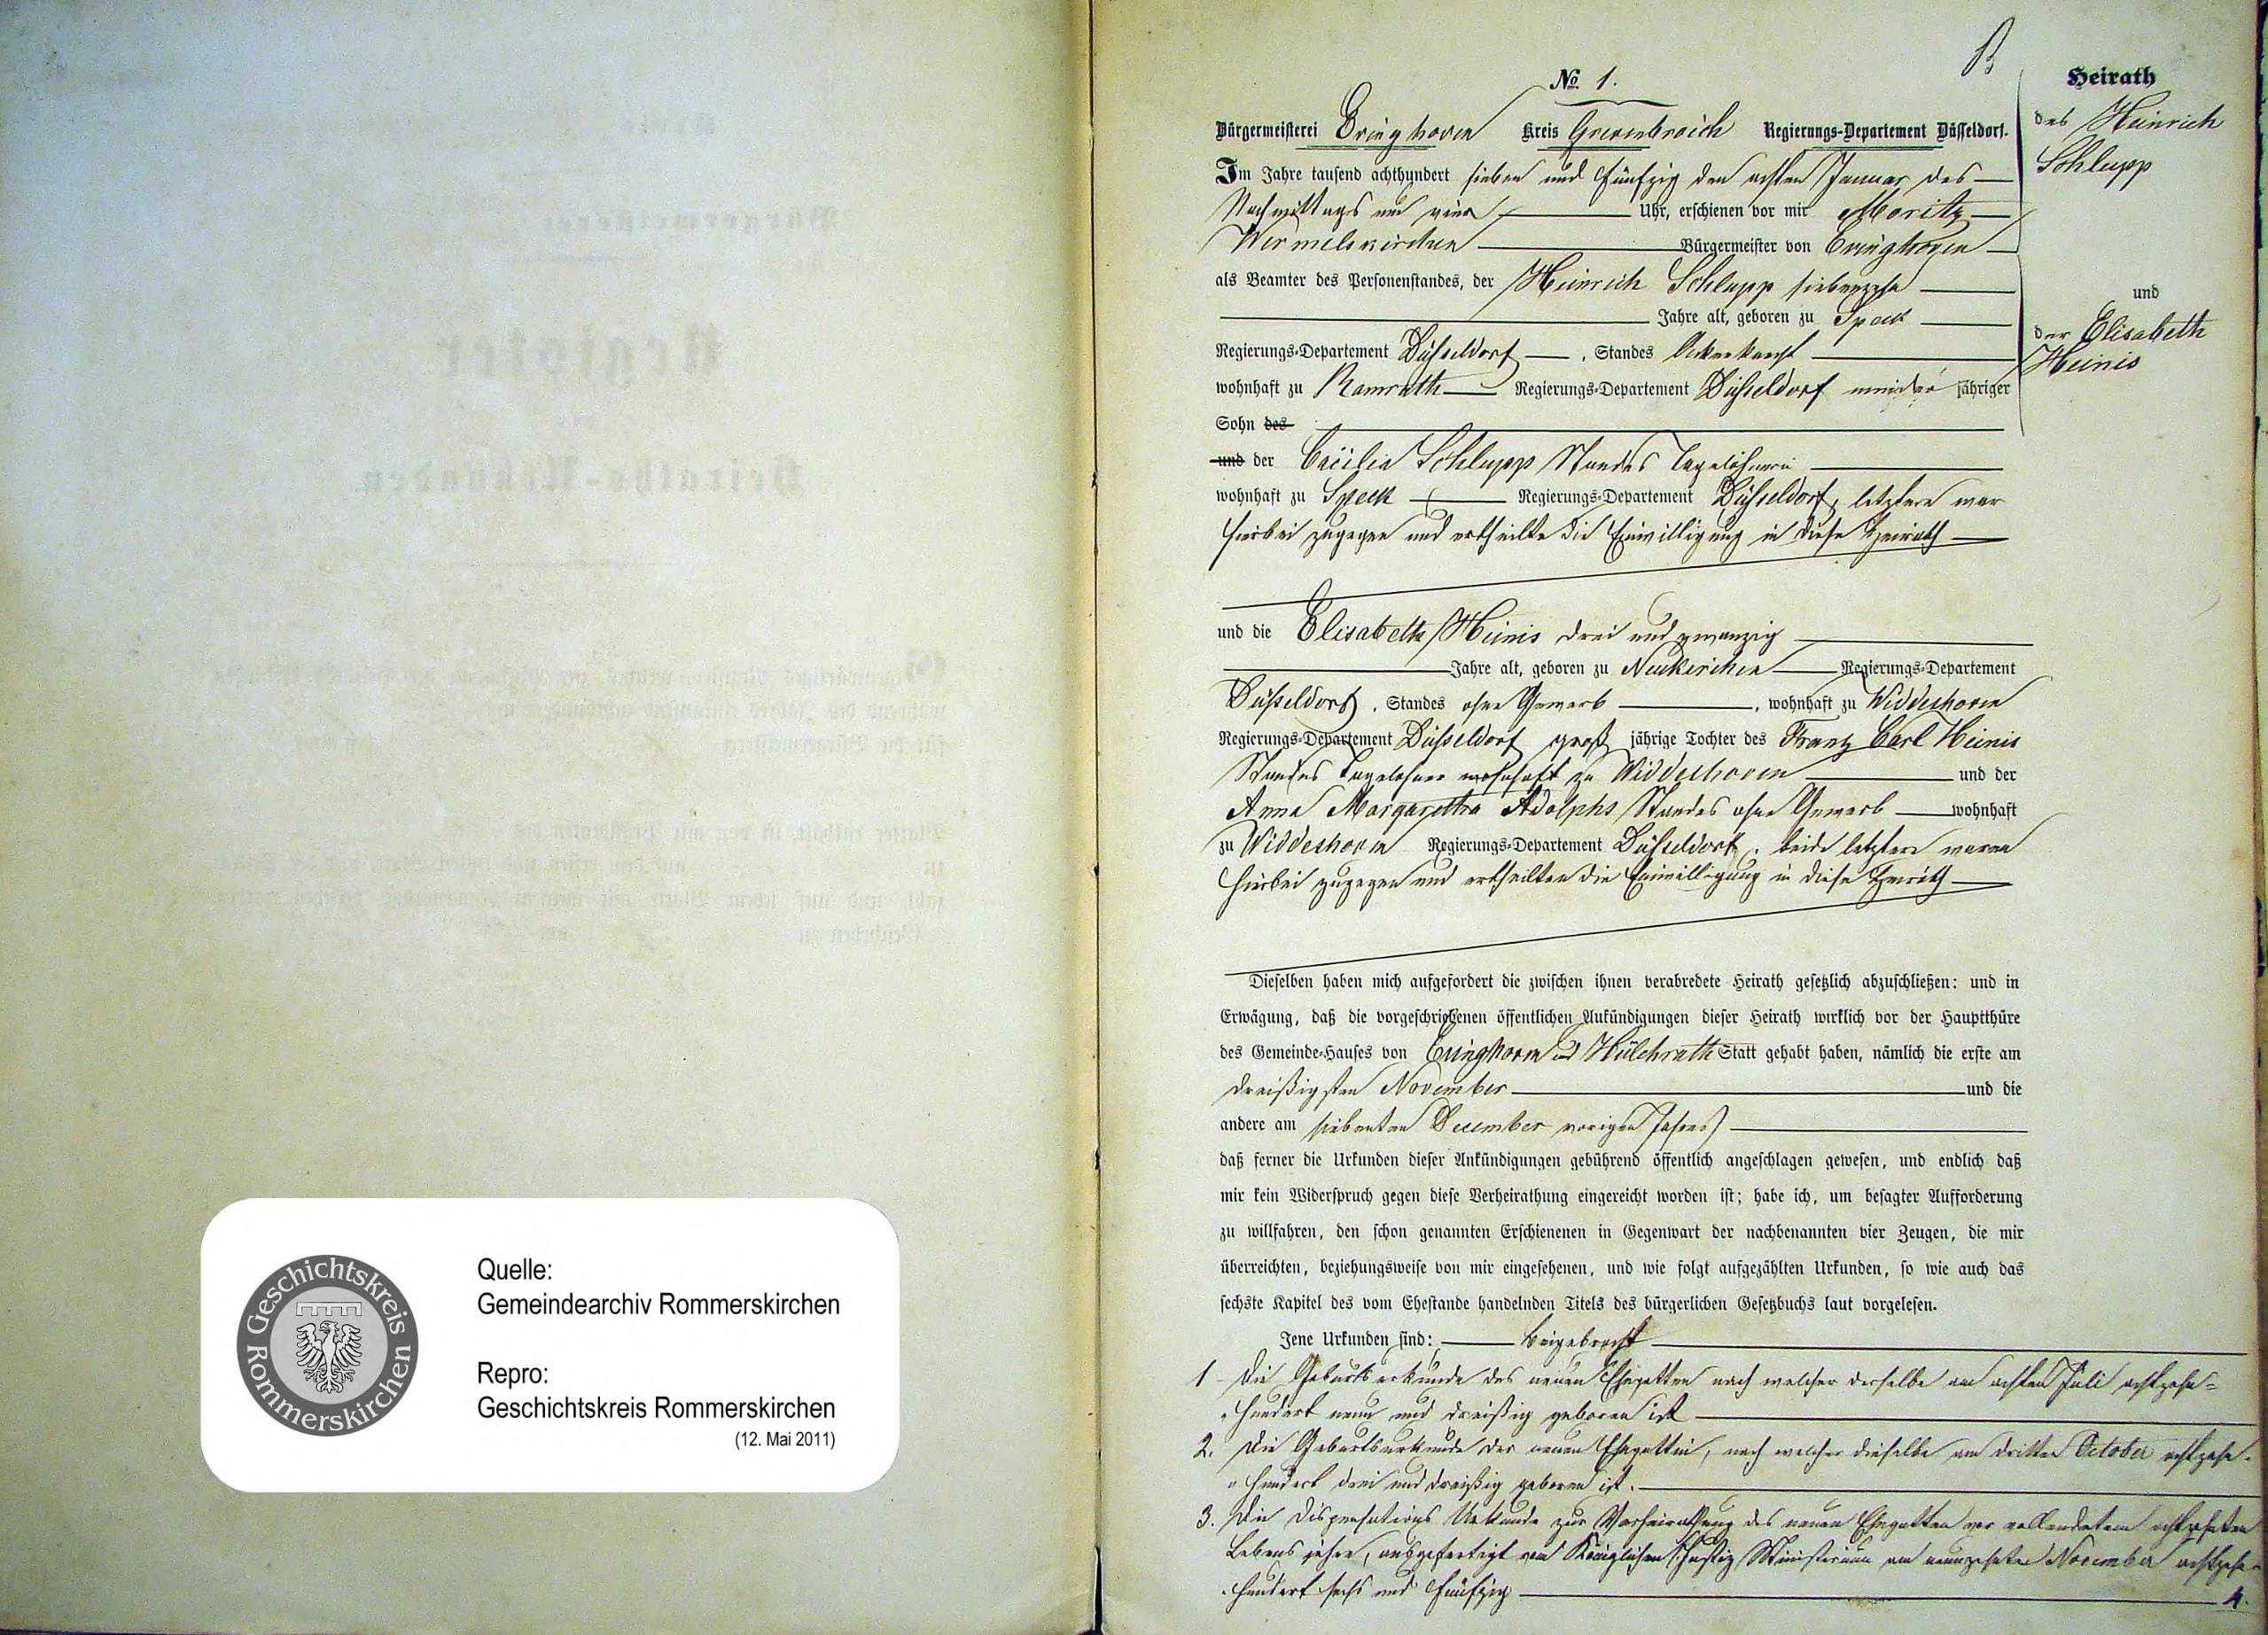 Geschichtskreis Rommerskirchen
Quelle:
Gemeindearchiv Rommerskirchen
Repro:
Geschichtskreis Rommerskirchen
(12. Mai 2011)
№ 1.
Bürgermeisterei Evinghoven Kreis Grevenbroich Regierungs-Departement Düsseldorf.
Im Jahre tausend achthundert sieben und fünfzig den achten Januar des
Nachmittags um vier Uhr, erschienen vor mir Moritz
Wermelskirchen Bürgermeister von Evinghoven
als Beamter des Personenstandes, der Heinrich Schlupp siebenzehn
Jahre alt, geboren zu Speck
Regierungs-Departement Düsseldorf, Standes Ackerknecht
wohnhaft zu Ramrath Regierungs-Departement Düsseldorf minder jähriger
Sohn des
und der Cäcilia Schlupp Standes Tagelöhnerin
wohnhaft zu Speck Regierungs-Departement Düsseldorf, letztere war
hierbei zugegen und ertheilte die Einwilligung in diese Heirath
und die Elisabeth Heinis drei und zwanzig
Jahre alt, geboren zu Neukirchen Regierungs-Departement
Düsseldorf, Standes ohne Gewerb, wohnhaft zu Widdeshoven
Regierungs-Departement Düsseldorf groß jährige Tochter des Franz Carl Heinis
Standes Tagelöhner wohnhaft zu Widdeshoven und der
Anna Margaretha Adolphs Standes ohne Gewerb wohnhaft
zu Widdeshoven Regierungs-Departement Düsseldorf, beide letztere waren
hierbei zugegen und ertheilten die Einwilligung in diese Heirath
Dieselben haben mich aufgefordert die zwischen ihnen verabredete Heirath gesetzlich abzuschließen: und in
Erwägung, daß die vorgeschriebenen öffentlichen Ankündigungen dieser Heirath wirklich vor der Hauptthüre
des Gemeinde-Hauses von Evinghoven und Hülchrath Statt gehabt haben, nämlich die erste am
dreißigsten November und die
andere am siebenten December vorigen Jahres
daß ferner die Urkunden dieser Ankündigungen gebührend öffentlich angeschlagen gewesen, und endlich daß
mir kein Widerspruch gegen diese Verheirathung eingereicht worden ist; habe ich, um besagter Aufforderung
zu willfahren, den schon genannten Erschienenen in Gegenwart der nachbenannten vier Zeugen, die mir
überreichten, beziehungsweise von mir eingesehenen, und wie folgt aufgezählten Urkunden, so wie auch das
sechste Kapitel des vom Ehestande handelnden Titels des bürgerlichen Gesetzbuchs laut vorgelesen.
Jene Urkunden sind: beigebracht
1 Die Geburtsurkunde des neuen Ehegatten nach welcher derselbe am achten Juli achtzehn-
hundert neun und dreißig geboren ist
2. Die Geburtsurkunde der neuen Ehegattin, nach welcher dieselbe am dritten October achtzehn-
hundert drei und dreißig geboren ist.
3. Die Dispensations Urkunde zur Verheirathung des neuen Ehegatten vor vollendetem achtzehnten
Lebensjahre, ausgefertigt vom Königlichen Justiz Ministerium am neunzehnten November achtzehn-
hundert sechs und fünfzig
4.
Heirath
des Heinrich
Schlupp
und
der Elisabeth
Heinis